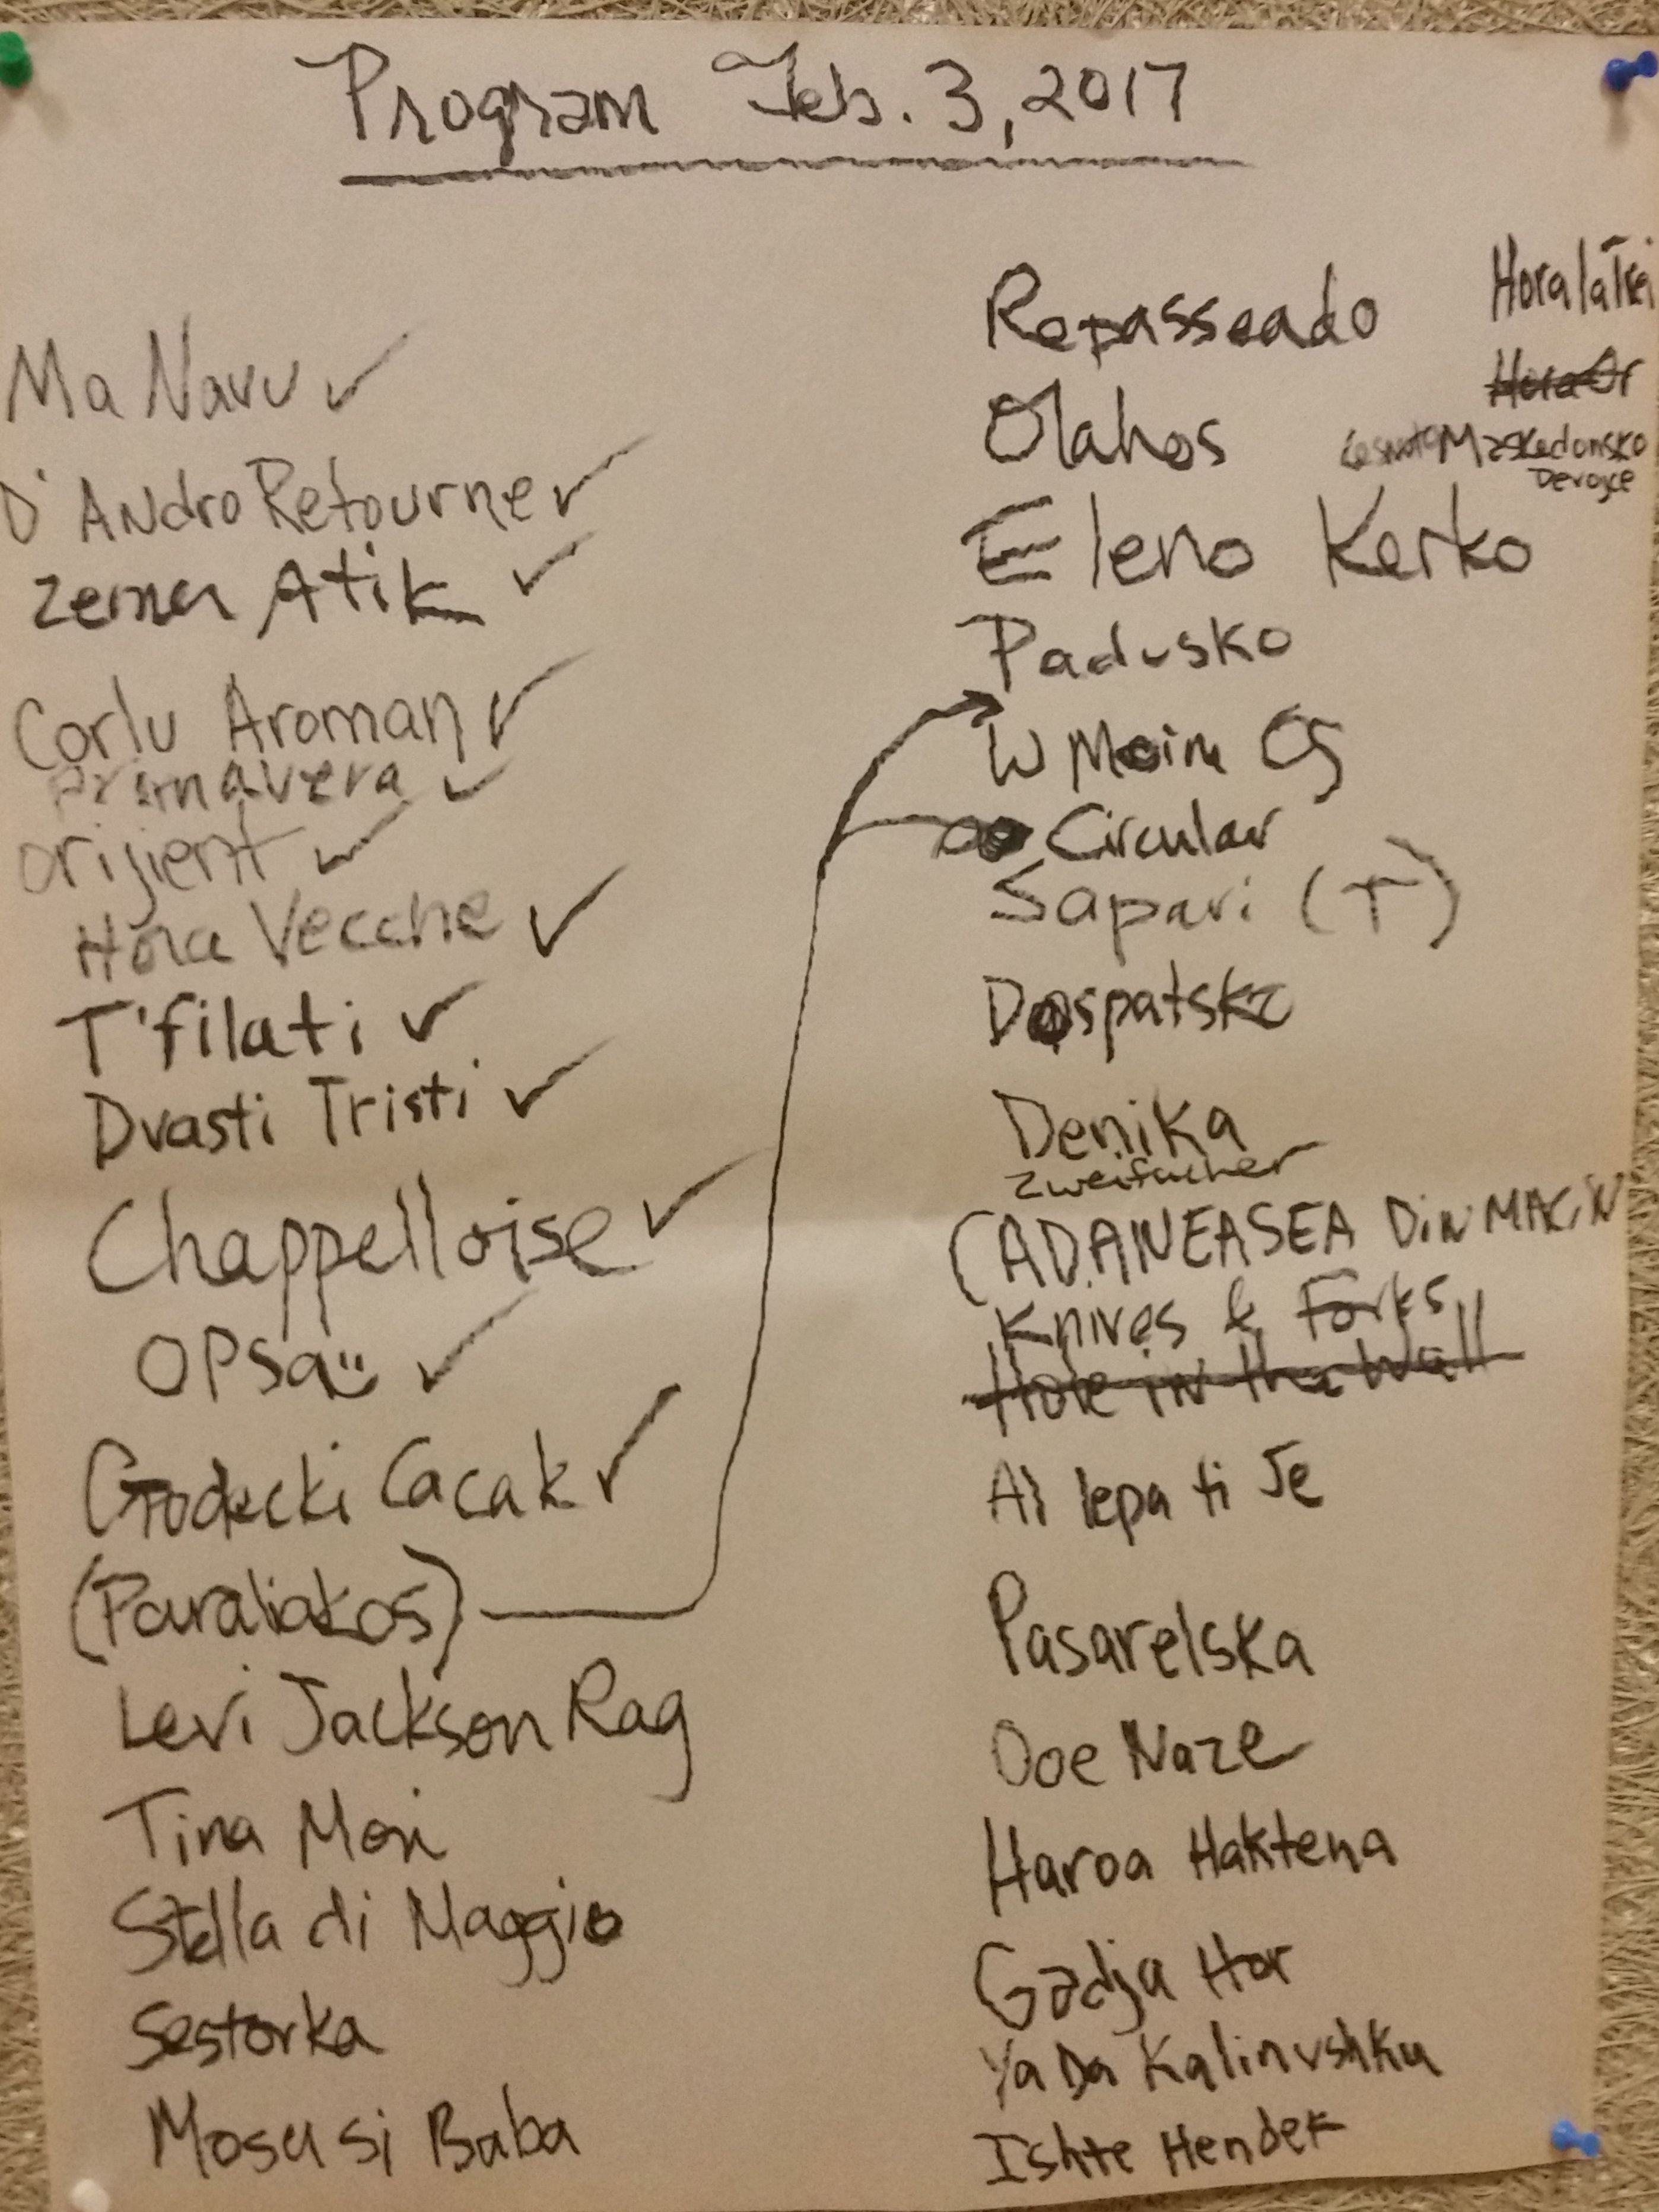 Program Feb. 3, 2017
Ma Navu ✓
D'Andro Retourne ✓
Zemer Atik ✓
Corlu Aroman ✓
Primavera ✓
Orijent ✓
Hora Vecche ✓
T'filati ✓
Dvasti Tristi ✓
Chappelloise ✓
OPSa ✓
Godecki Cacak ✓
(Paraliakos)
Levi Jackson Rag
Tina Mori
Stella di Maggio
Sestorka
Mosu si Baba
Repasseado
Olahos
Eleno Kerko
Padusko
W Moim Og
Circular
Sapari (T)
Dospatsko
Denika
Zweifacher
(CADANEASEA DiN MACiN
Knives & Forks
Hole in the Wall
Al lepa ti Je
Pasarelska
Doe Naze
Haroa Haktena
Gadja Hor
Ya Da Kalinushku
Ishte Hendek
Hora la Trei
Hora Or
Maskedonsko
Devojce